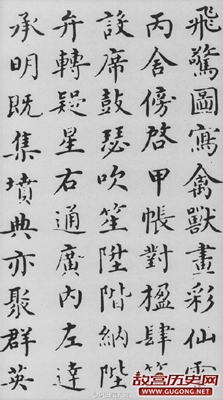 飛驚圖寫禽獸畫彩仙靈
丙舍傍啓甲帳對楹肆筵
設席鼓瑟吹笙陞階納陛
弁轉疑星右通廣內左達
承明既集墳典亦聚群英
故宫历史网
WWW.GUGONG.NET